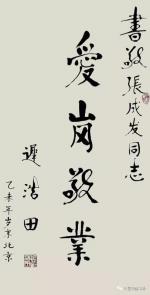 書敬張成发同志
愛崗敬業
遲浩田
乙未年岁末北京